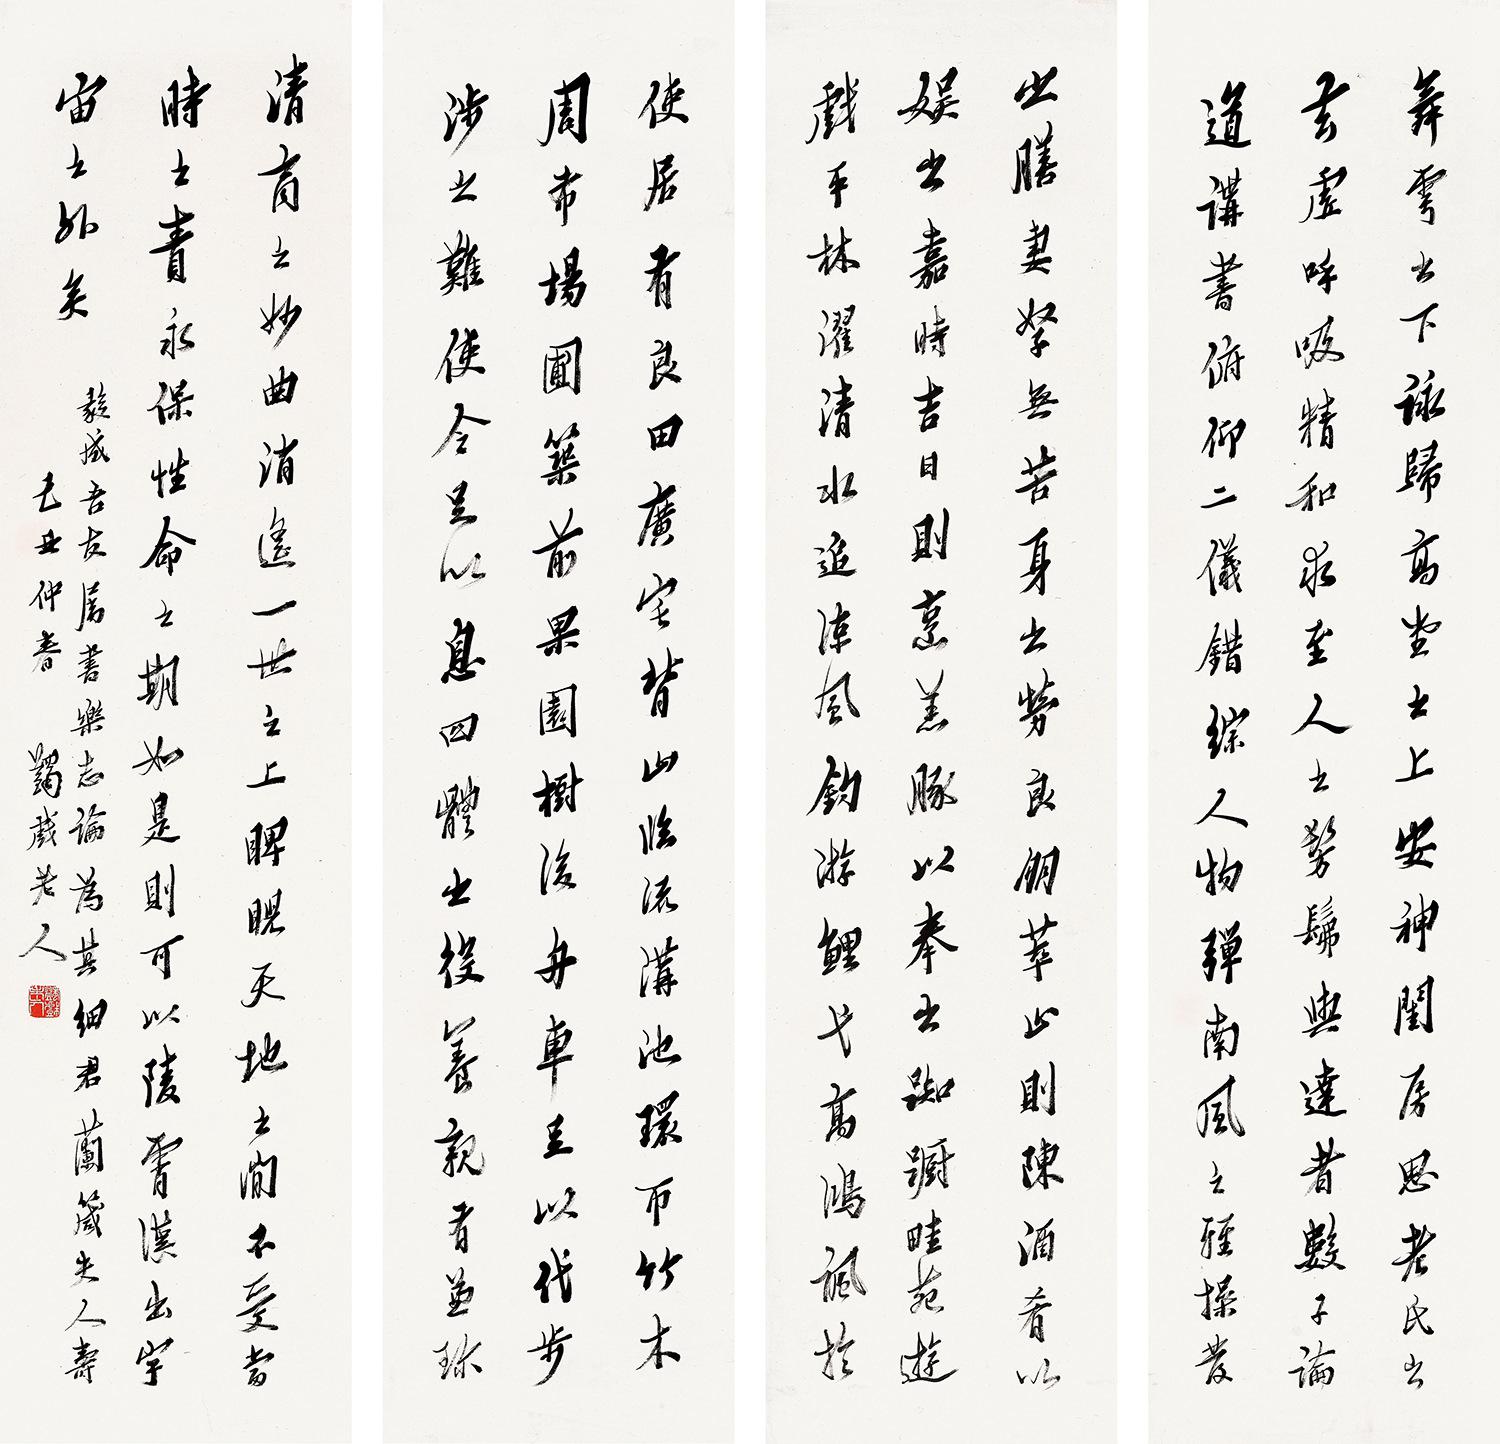 使居有良田廣宅背山臨流溝池環帀竹木
周布場圃築前果園樹後舟車足以代步
涉之難使令足以息四體之役養親有兼珍
之膳妻孥無苦身之勞良朋萃止則陳酒肴以
娛之嘉時吉日則烹羔豚以奉之踟躕畦苑遊
戲平林濯清水追涼風釣游鯉弋高鴻諷於
舞雩之下詠歸高堂之上安神閨房思老氏之
玄虛呼吸精和求至人之髣髴與達者數子論
道講書俯仰二儀錯綜人物彈南風之雅操發
清商之妙曲消遙一世之上睥睨天地之間不受當
時之責永保性命之期如是則可以陵霄漢出宇
宙之外矣
毅成吾友屬書樂志論為其細君蘭箴夫人壽
己丑仲春 蠲戲老人